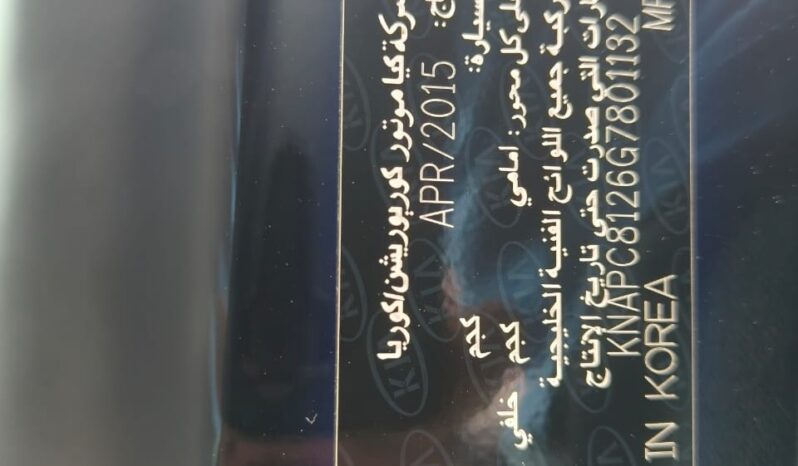 شركة كيا موتور كوربوريشن/كوريا
APR/2015
سيارة: كجم
كل محور: امامي كجم خلفي
جميع اللوائح الفنية الخليجية
التي صدرت حتى تاريخ الإنتاج
KNAPC8126G7801132
IN KOREA